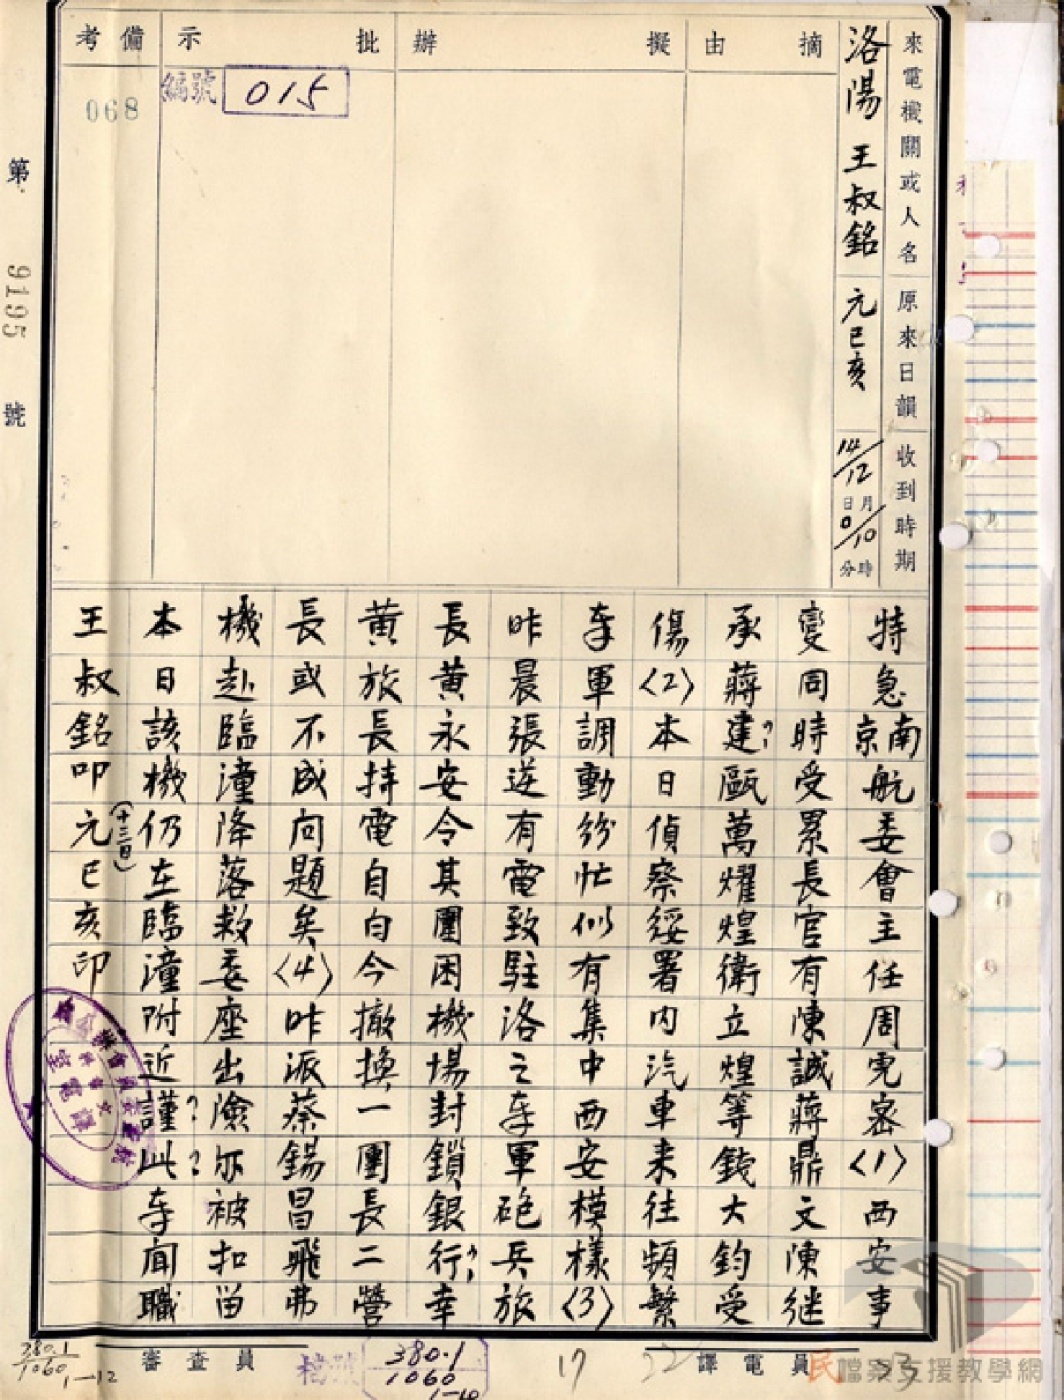 來電機關或人名
原來日韻
收到時期
洛陽 王叔銘
元巳亥
14/12
日 月
0/10
分 時
摘由
擬辦
批示
編號 015
備考
068
第 9195 號
特急南京航委會主任周密〈1〉西安事
變同時受累長官有陳誠蔣鼎文陳继
承蔣建?甌萬耀煌衛立煌等錢大鈞受
傷〈2〉本日偵察綏署内汽車来往頻繁
奉軍調動紛忙似有集中西安模樣〈3〉
昨晨張逆有電致駐洛之奉軍砲兵旅
長黄永安令其團困機場封鎖銀行?幸
黄旅長持電自白今撤换一團長二營
長或不成问題矣〈4〉昨派蔡錫昌飛弗
機赴臨潼降落救委座出險?亦被扣留
本日該機仍在臨潼附近謹?此?奉聞職
王叔銘叩元(十三日)巳亥印
審查員
譯電員
檔號
380.1
1060
1-10
380.1
1060
1-12
17
22
23
民檔案支援教學網